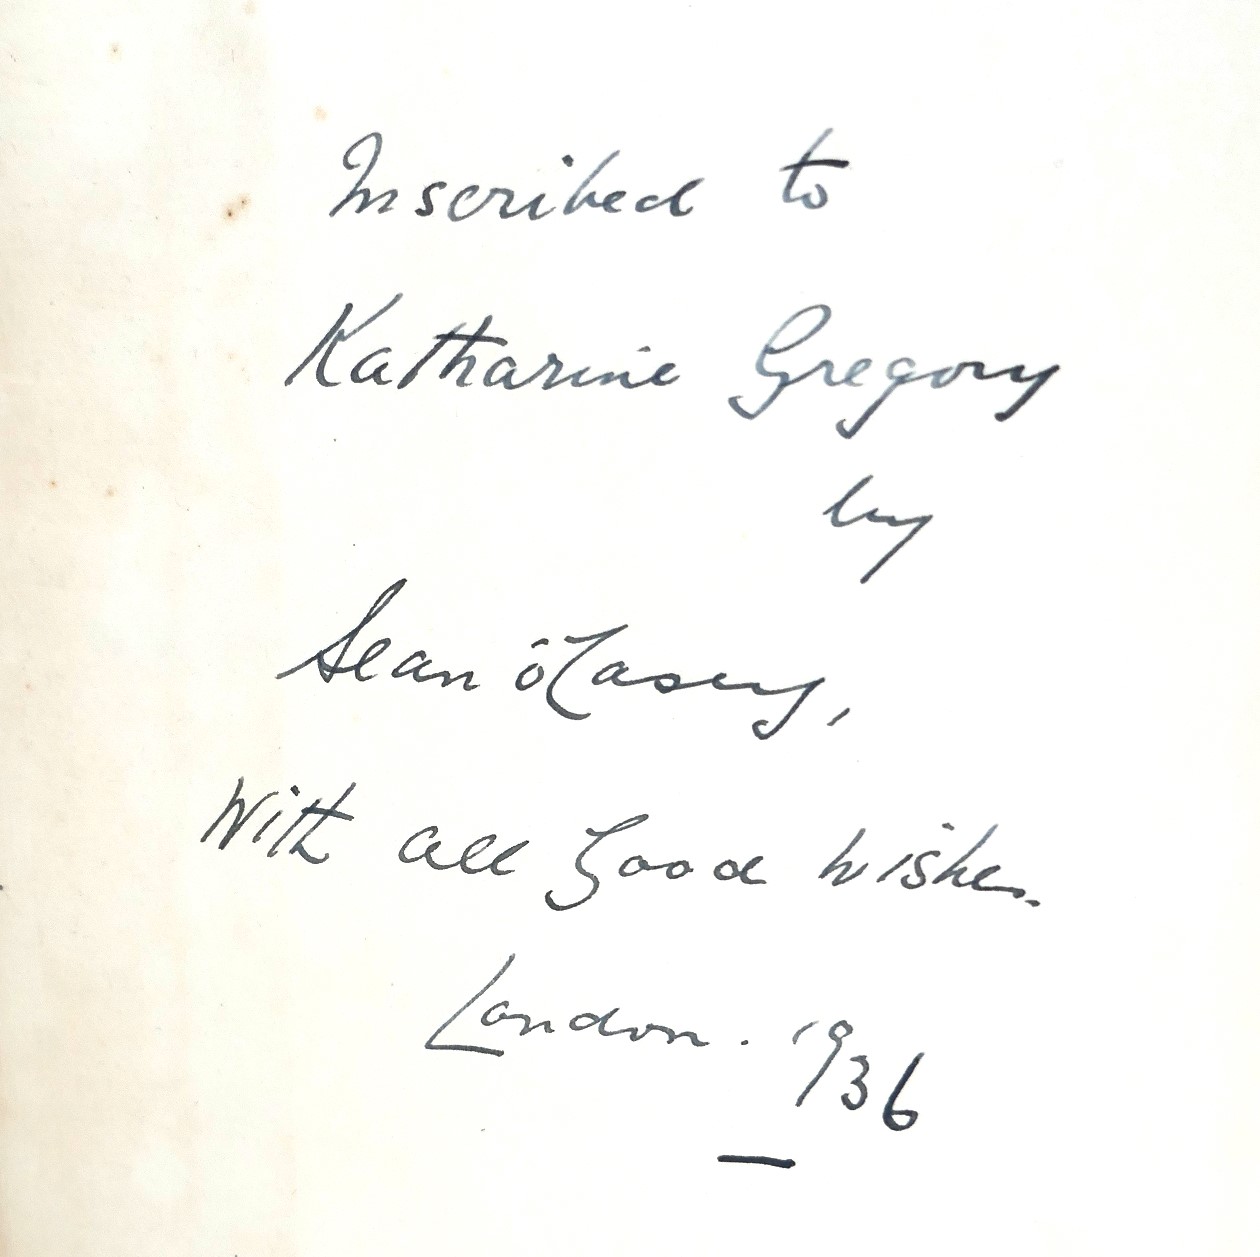 Inscribed to
Katharine Gregory
by
Sean O'Casey,
With all Good Wishes.
London. 1936